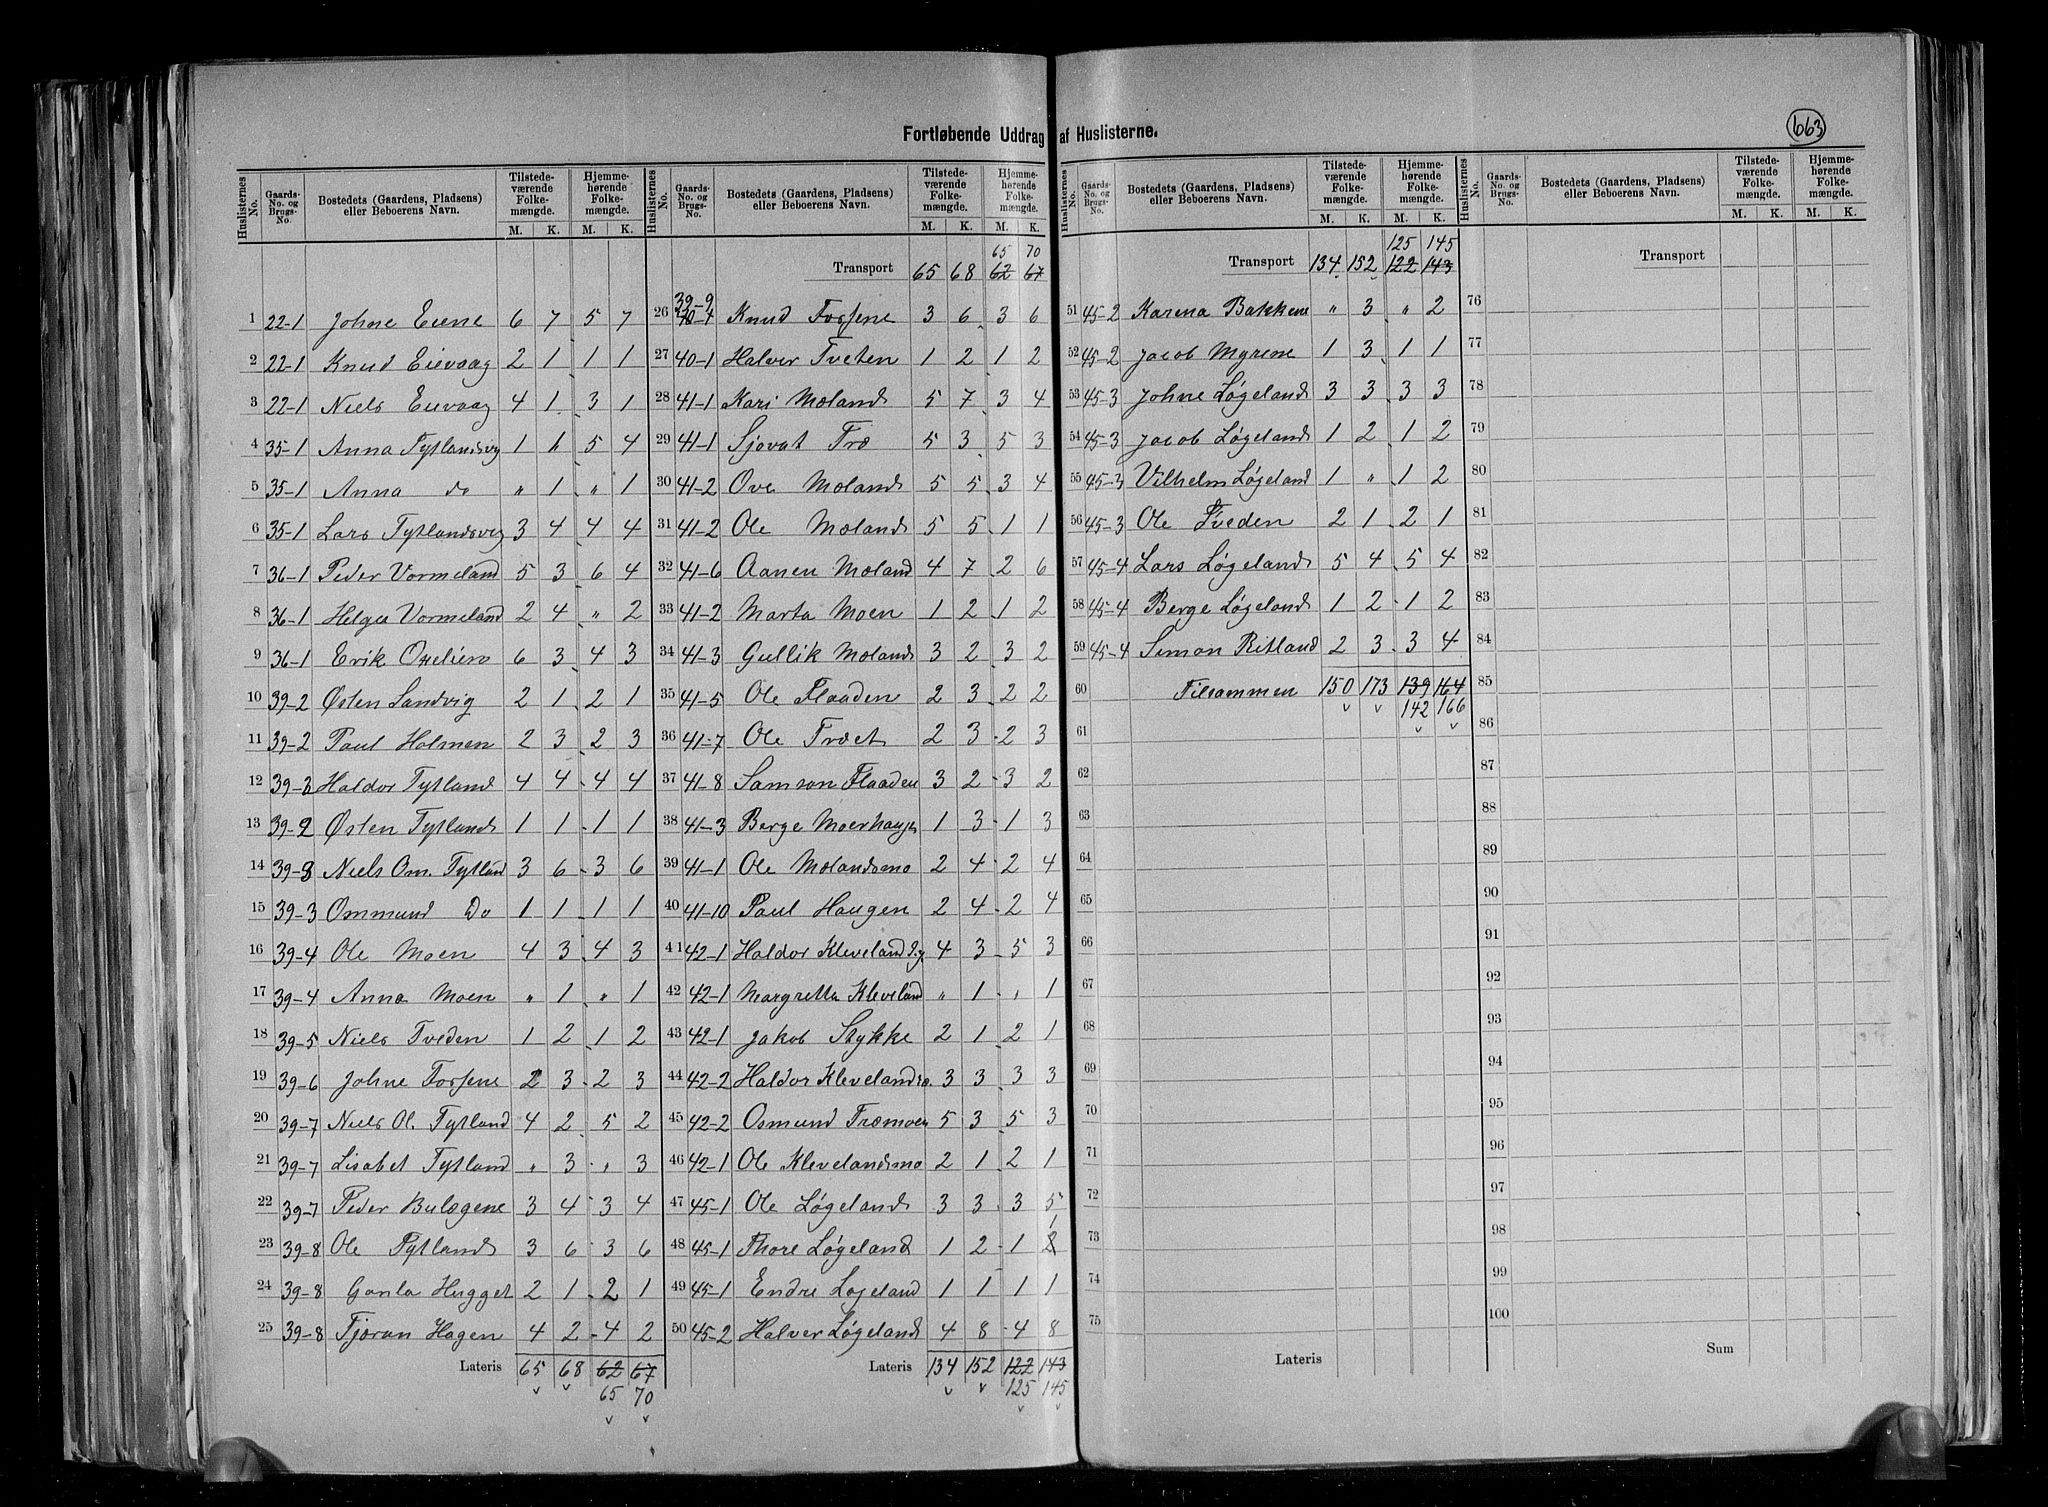 Fortløbende Uddrag af Huslisterne.
663
Huslisternes No. | Gaards-No. og Brugs-No. | Bostedets (Gaardens, Pladsens) eller Beboerens Navn. | Tilstedeværende Folkemængde. M. K. | Hjemmehørende Folkemængde. M. K.
1 22-1 Johne Eiene 6 7 5 7
2 22-1 Knud Eievaag 2 1 1 1
3 22-1 Niels Eievaag 4 1 3 1
4 35-1 Anna Tytlandsvig 1 5 4
5 35-1 Anna do " 1 " 1
6 35-1 Lars Tytlandsvig 3 4 4 4
7 36-1 Peder Vormeland 5 3 6 4
8 36-1 Helga Vormeland 2 4 " 2
9 36-1 Erik 6 3 4 3
10 39-2 Østen Sandvig 2 1 2 1
11 39-2 Paul Holmen 2 3 2 3
12 39-2 Haldor Tytland 4 4 4 4
13 39-2 Østen Tytland 1 1 1 1
14 39-8 Niels Om. Tytland 3 6 3 6
15 39-3 Ommund Do 1 1 1 1
16 39-4 Ole Moen 4 3 4 3
17 39-4 Anna Moen " 1 " 1
18 39-5 Niels Tveden 1 2 1 2
19 39-6 Johne Fossene 2 3 2 3
20 39-7 Niels Ol. Tytland 4 2 5 2
21 39-7 Lisabet Tytland " 3 " 3
22 39-7 Peder Bulægene 3 4 3 4
23 39-8 Ole Tytland 3 6 3 6
24 39-8 Gonla Hugget 2 1 2 1
25 39-8 Tjøran Hagen 4 2 4 2
Lateris 65 68 62 67
65 70
65 70
Transport 65 68 62 67
26 39-9 40-1 Knud Fossene 3 6 3 6
27 40-1 Halver Tveten 1 2 1 2
28 41-1 Kari Moland 5 7 3 4
29 41-1 Sjovat Træ 5 3 5 3
30 41-2 Ove Moland 5 5 3 4
31 41-2 Ole Moland 5 5 1 1
32 41-6 Aanen Moland 4 7 2 6
33 41-2 Marta Moen 1 2 1 2
34 41-3 Gullik Moland 3 2 3 2
35 41-5 Ole Flaaden 2 3 2 2
36 41-7 Ole Træet 2 3 2 3
37 41-8 Samson Flaaden 3 2 3 2
38 41-3 Berge Moerhaugen 1 3 1 3
39 41-1 Ole Molandsmo 2 4 2 4
40 41-10 Paul Haugen 2 4 2 4
41 42-1 Haldor Kleveland 4 3 5 3
42 42-1 Margretta Kleveland " 1 " 1
43 42-1 Jakob Stykke 2 1 2 1
44 42-2 Haldor Klevelandsm. 3 3 3 3
45 42-2 Osmund Træmoen 5 3 5 3
46 42-1 Ole Klevelandsmo 2 1 2 1
47 45-1 Ole Løgeland 3 3 3 5
48 45-1 Thore Løgeland 1 2 1 2 1
49 45-1 Endre Løgeland 1 1 1 1
50 45-2 Halver Løgeland 4 8 4 8
Lateris 134 152 122 143
125 145
125 145
Transport 134 152 122 143
51 45-2 Karena Bakkene " 3 " 2
52 45-2 Jacob Myrene 1 3 1 1
53 45-3 Johne Løgeland 3 3 3 3
54 45-3 Jacob Løgeland 1 2 1 2
55 45-3 Vilhelm Løgeland 1 " 1 2
56 45-3 Ole Tveden 2 1 2 1
57 45-4 Lars Løgeland 5 4 5 4
58 45-4 Berge Løgeland 1 2 1 2
59 45-4 Simon Ritland 2 3 3 4
60 Tilsammen 150 173 139 164
142 166
61
62
63
64
65
66
67
68
69
70
71
72
73
74
75
Lateris
Transport
76
77
78
79
80
81
82
83
84
85
86
87
88
89
90
91
92
93
94
95
96
97
98
99
100
Sum